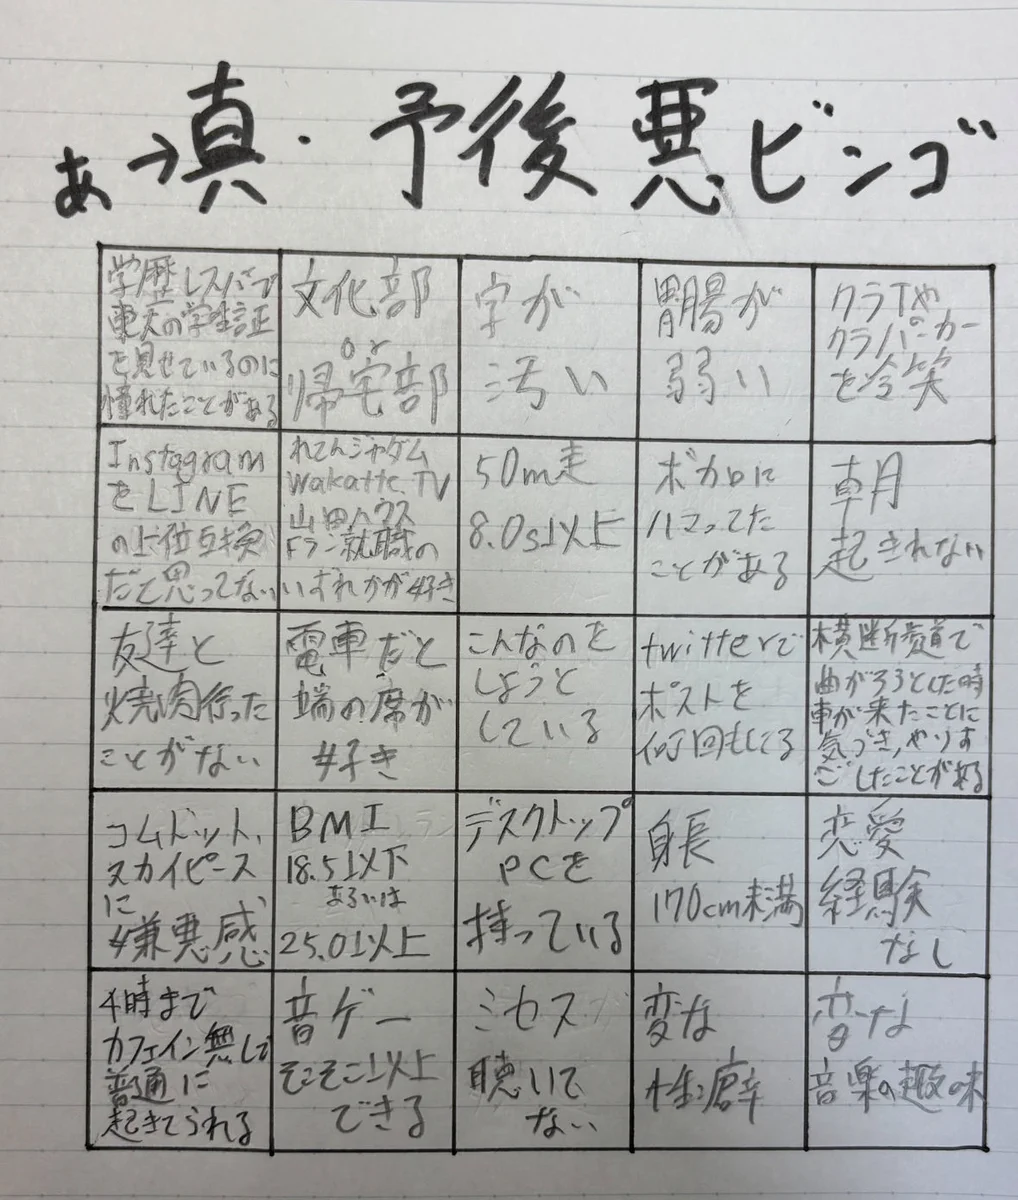 あ→真・予後悪ビンゴ
学歴レスバで
東大の学生証
を見せているのに
憧れたことがある
文化部
or
帰宅部
字が
汚い
胃腸が
弱い
クラTや
クラパーカー
を冷笑
Instagram
をLINE
の上位互換
だと思ってない
れてんジャダム
wakatte.TV
山田ハウス
Fラン就職の
いずれかが好き
50m走
8.0s以上
ボカロに
ハマってた
ことがある
朝
起きれない
友達と
焼肉行った
ことがない
電車だと
端の席が
好き
こんなのを
しようと
している
twitterで
ポストを
何回もしてる
横断歩道で
曲がろうとした時
車が来たことに
気づき、やりす
ごしたことがある
コムドット、
スカイピース
に
嫌悪感
BMI
18.5以下
あるいは
25.0以上
デスクトップ
PCを
持っている
身長
170cm未満
恋愛
経験
なし
4時まで
カフェイン無しで
普通に
起きてられる
音ゲー
そこそこ以上
できる
ミセス
聴いて
ない
変な
性癖
変な
音楽の趣味